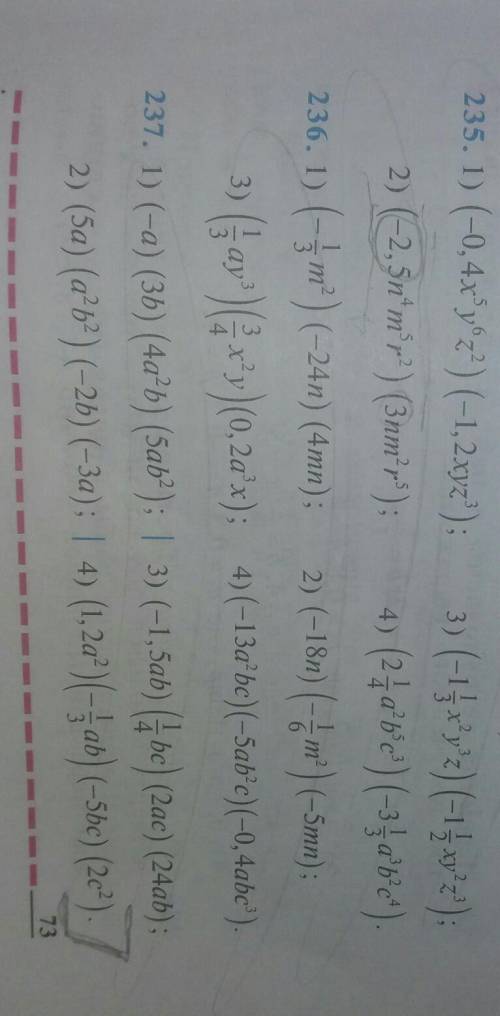 235. 1) (−0,4x⁵y⁶z²) (−1,2xyz³); 3) (−1 1/3 x²y³z) (−1 1/2 xy²z³);
2) (−2,5n⁴m⁵r²) (3nm²r⁵); 4) (2 1/4 a²b⁵c³) (−3 1/3 a³b²c⁴).
236. 1) (−1/3 m²) (−24n) (4mn); 2) (−18n) (−1/6 m²) (−5mn);
3) (1/3 ay³) (3/4 x²y) (0,2a³x); 4) (−13a²bc) (−5ab²c) (−0,4abc³).
237. 1) (−a) (3b) (4a²b) (5ab²); | 3) (−1,5ab) (1/4 bc) (2ac) (24ab);
2) (5a) (a²b²) (−2b) (−3a); | 4) (1,2a²) (−1/3 ab) (−5bc) (2c²).
73